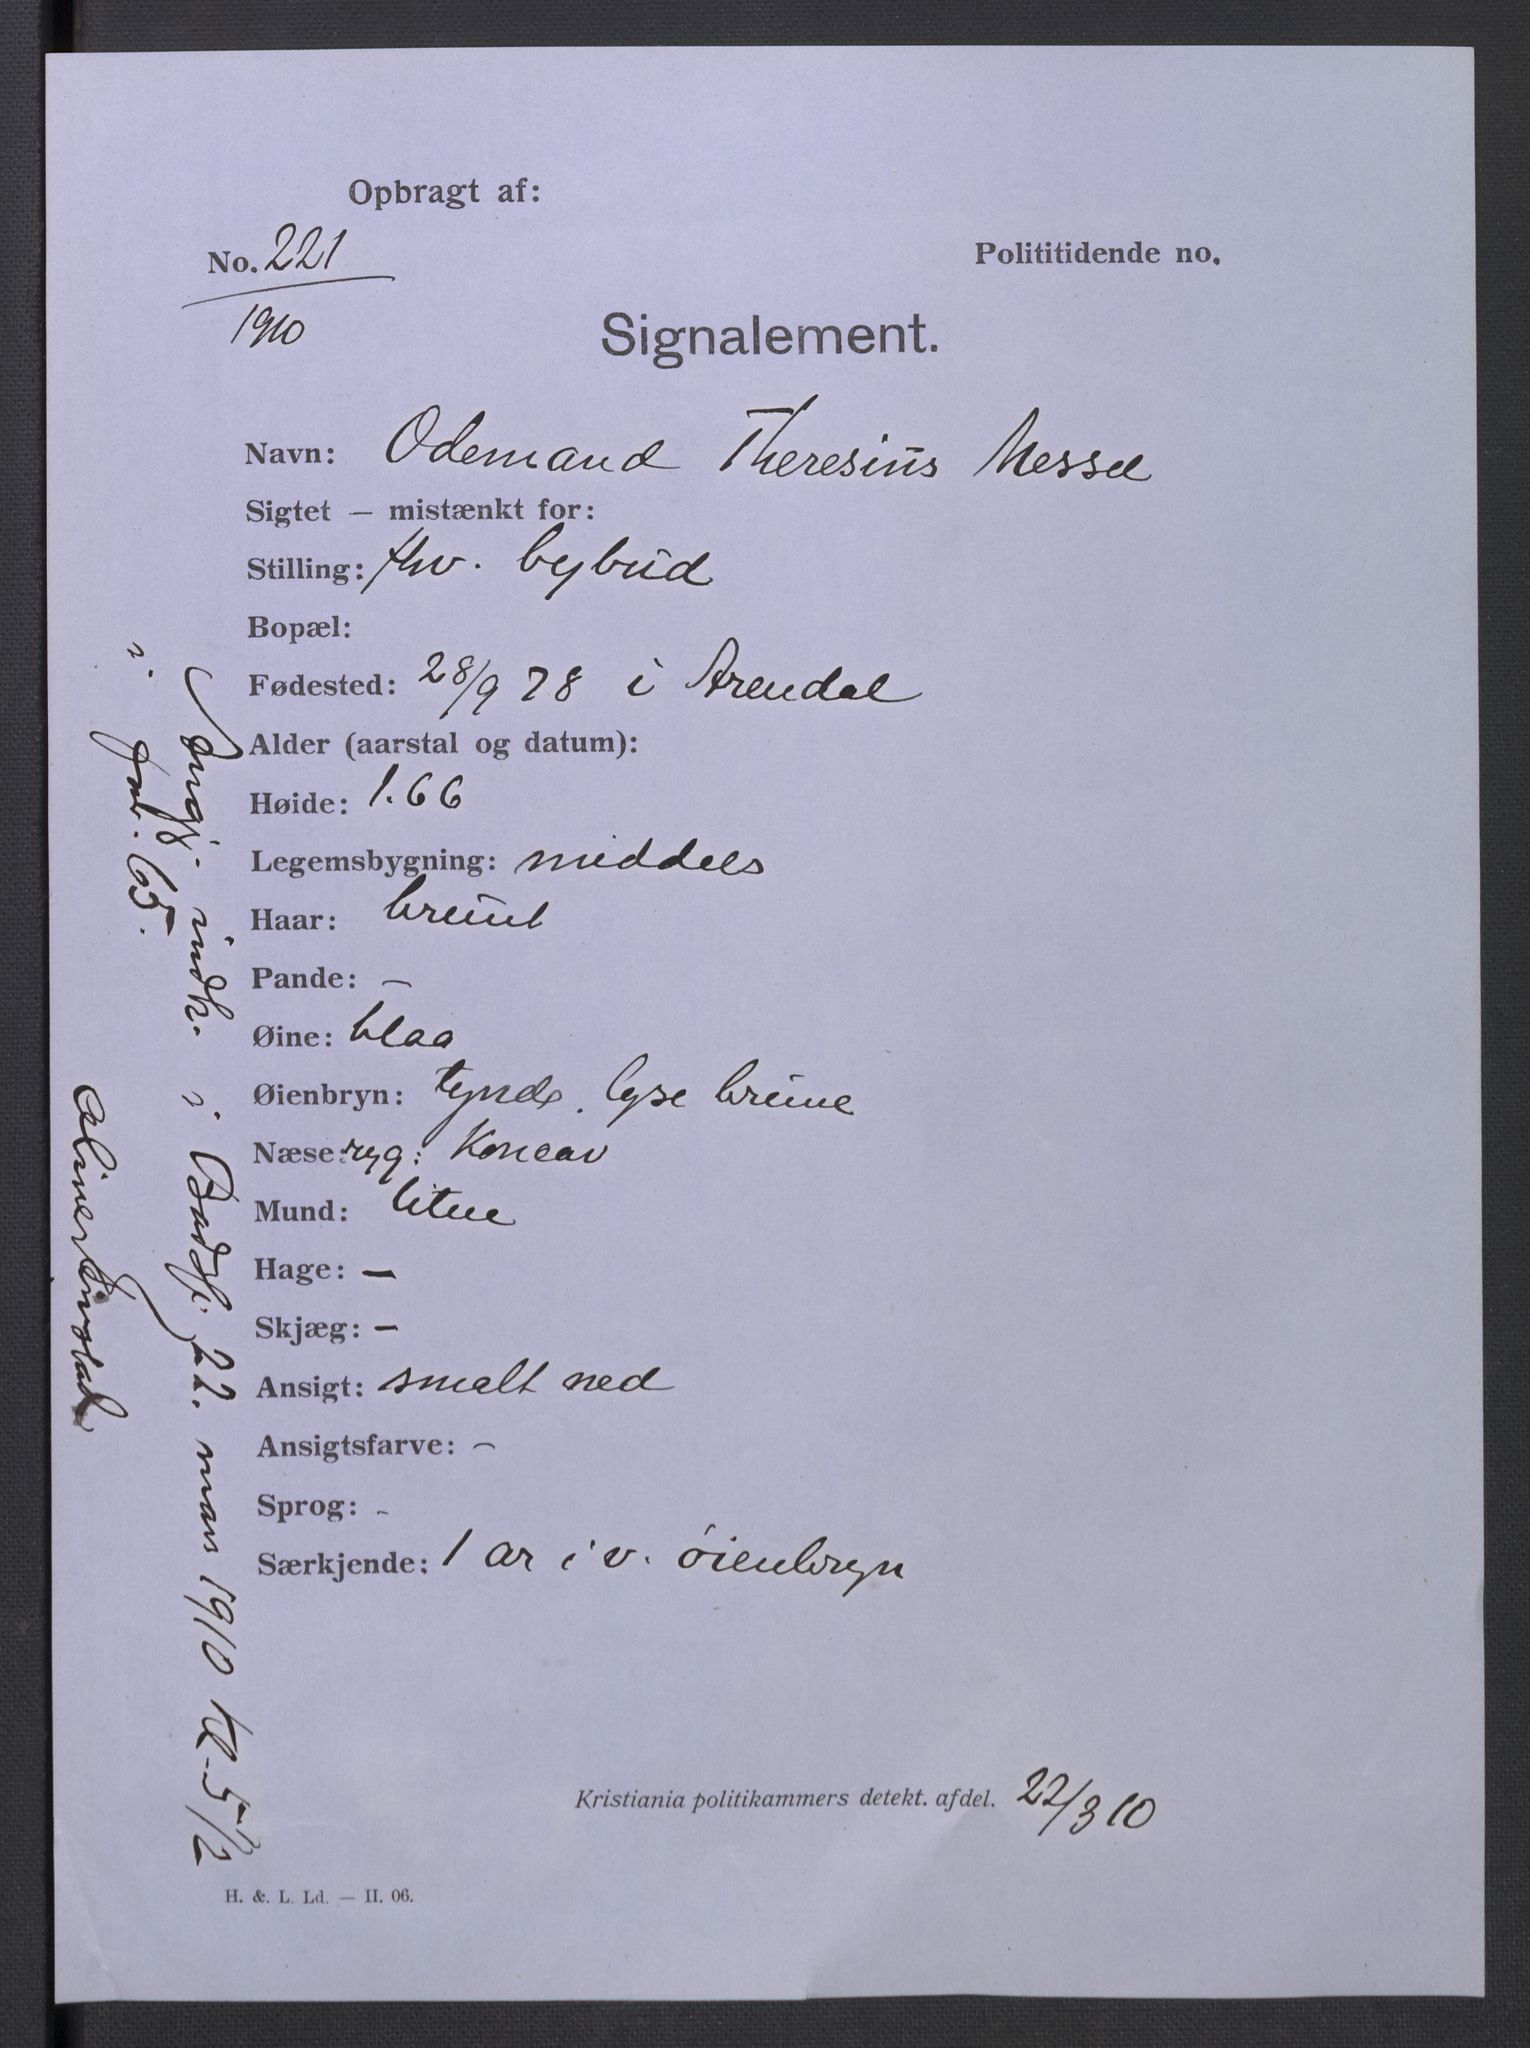 Opbragt af:
No. 221
1910
Polititidende no.
Signalement.
Navn: Odemand Theresius Messel
Sigtet — mistænkt for:
Stilling: fhv. bybud
Bopæl:
Fødested: 28/9 78 i Arendal
Alder (aarstal og datum):
Høide: 1.66
Legemsbygning: middels
Haar: brunt
Pande: –
Øine: blaa
Øienbryn: tynde, lyse brune
Næse: ryg: Koncav
Mund: liten
Hage: –
Skjæg: –
Ansigt: smalt ned
Ansigtsfarve: –
Sprog: –
Særkjende: 1 ar i v. øienbryn
Kristiania politikammers detekt. afdel. 22/3 10
H. & L. Ld. — II. 06.
indk. i 22. mars 1910 kl. 5 1/2
i 65.